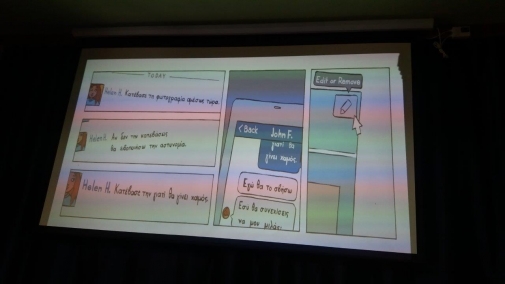 TODAY
Helen H. Κατέβασε τη φωτογραφία αμέσως τώρα.
Helen H. Αν δεν την κατεβάσεις
θα ειδοποιήσω την αστυνομία.
Helen H. Κατέβασε την γιατί θα γίνει χαμός.
< Back John F.
γιατί θα
γίνει χαμός.
Εγώ θα το σβήσω
Εσύ θα συνεχίσεις
να μου μιλάς;
Edit or Remove